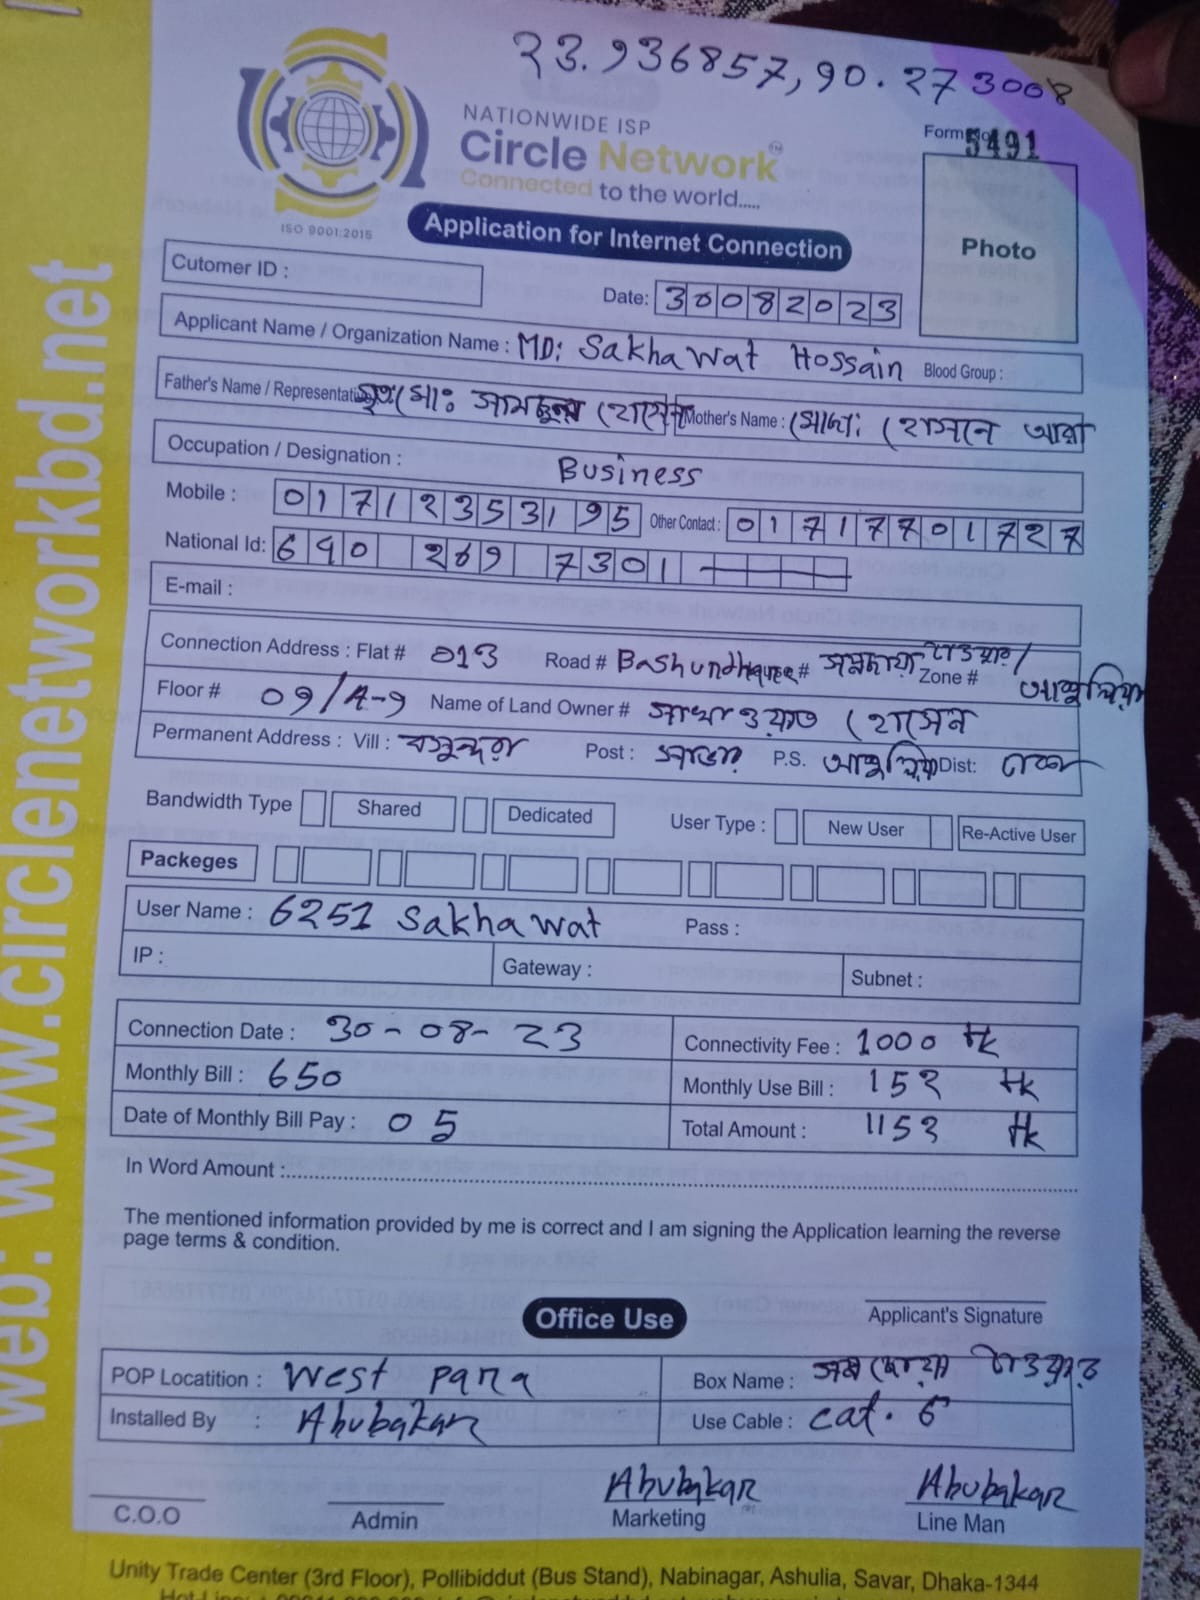 23.936857, 90.273008
NATIONWIDE ISP
Circle Network
Connected to the world.....
ISO 9001:2015
Form No 5491
Application for Internet Connection
Photo
Cutomer ID :
Date: 30082023
Applicant Name / Organization Name : MD: Sakhawat Hossain Blood Group :
Father's Name / Representative মৃত: মোঃ হোসেন Mother's Name : মোছা: হোসনে আরা
Occupation / Designation : Business
Mobile : 01712353195 Other Contact : 01717701727
National Id: 690 269 7301
E-mail :
Connection Address : Flat # 013 Road # Bashundhara # টাওয়ার / Zone # আশুলিয়া
Floor # 09/A-9 Name of Land Owner # সাখাওয়াত হোসেন
Permanent Address : Vill : বসুন্ধরা Post : সাভার P.S. আশুলিয়া Dist: ঢাকা
Bandwidth Type Shared Dedicated User Type : New User Re-Active User
Packeges
User Name : 6251 Sakhawat Pass :
IP : Gateway : Subnet :
Connection Date : 30-08-23 Connectivity Fee : 1000 tk
Monthly Bill : 650 Monthly Use Bill : 152 tk
Date of Monthly Bill Pay : 05 Total Amount : 1152 tk
In Word Amount :
The mentioned information provided by me is correct and I am signing the Application learning the reverse
page terms & condition.
Applicant's Signature
Office Use
POP Locatition : West para Box Name : টাওয়ার
Installed By : Abubakar Use Cable : cat. 6
Abubakar Abubakar
C.O.O Admin Marketing Line Man
Unity Trade Center (3rd Floor), Pollibiddut (Bus Stand), Nabinagar, Ashulia, Savar, Dhaka-1344
web: www.circlenetworkbd.net